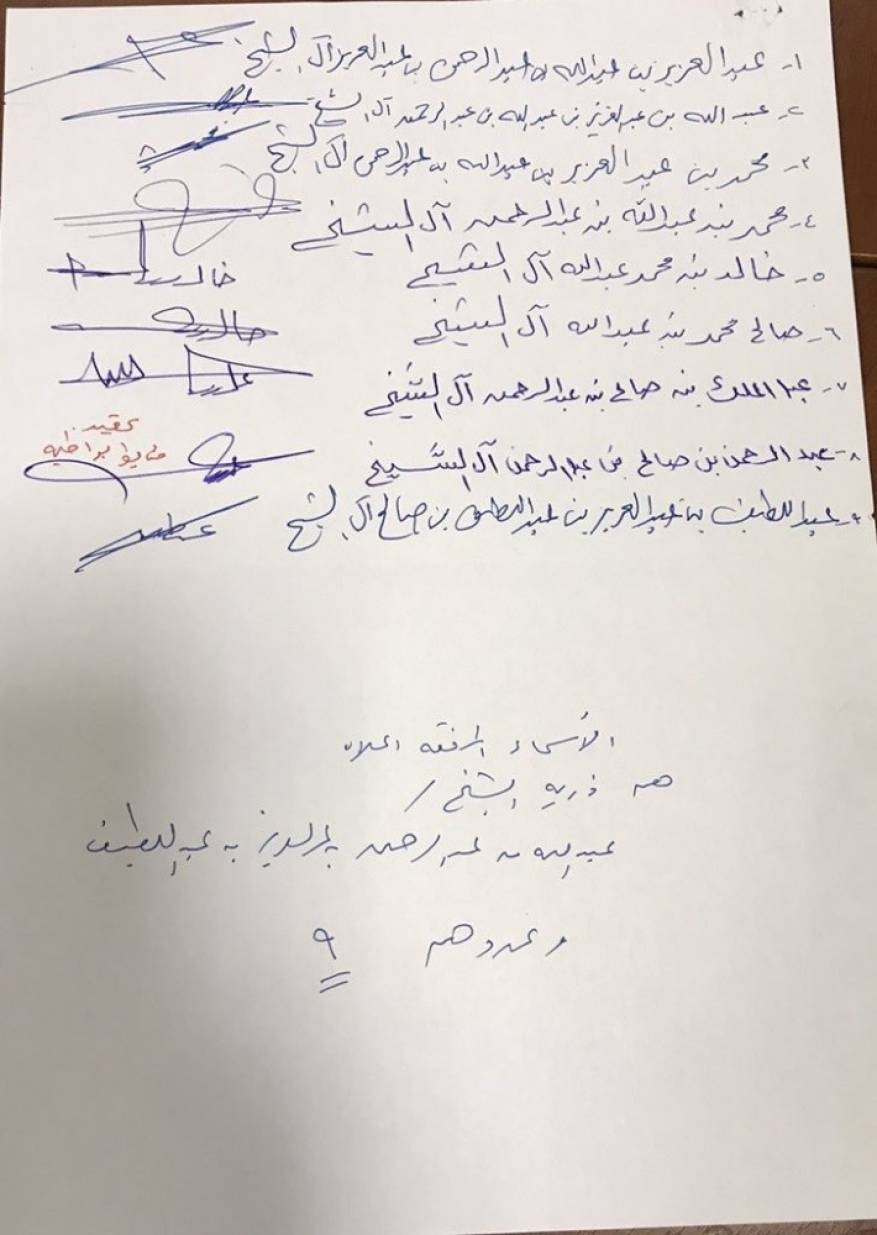 ١- عبد العزيز بن عبدالله بن عبدالرحمن بن عبدالعزيز آل الشيخ
٢- عبد الله بن عبدالعزيز بن عبدالله بن عبدالرحمن آل الشيخ
٣- محمد بن عبدالعزيز بن عبدالله بن عبدالرحمن آل الشيخ
٤- محمد بن عبدالله بن عبدالرحمن آل الشيخ
٥- خالد بن محمد عبدالله آل الشيخ خالد
٦- صالح محمد بن عبدالله آل الشيخ صالح
٧- عبدالملك بن صالح بن عبدالرحمن آل الشيخ
٨- عبدالرحمن بن صالح بن عبدالرحمن آل الشيخ
عقيد
٩- عبداللطيف بن عبدالعزيز بن عبداللطيف بن صالح آل الشيخ
الأسماء المرفقه اعلاه
هم ذرية الشيخ /
عبدالله بن عبدالرحمن بن عبداللطيف
وعددهم ٩